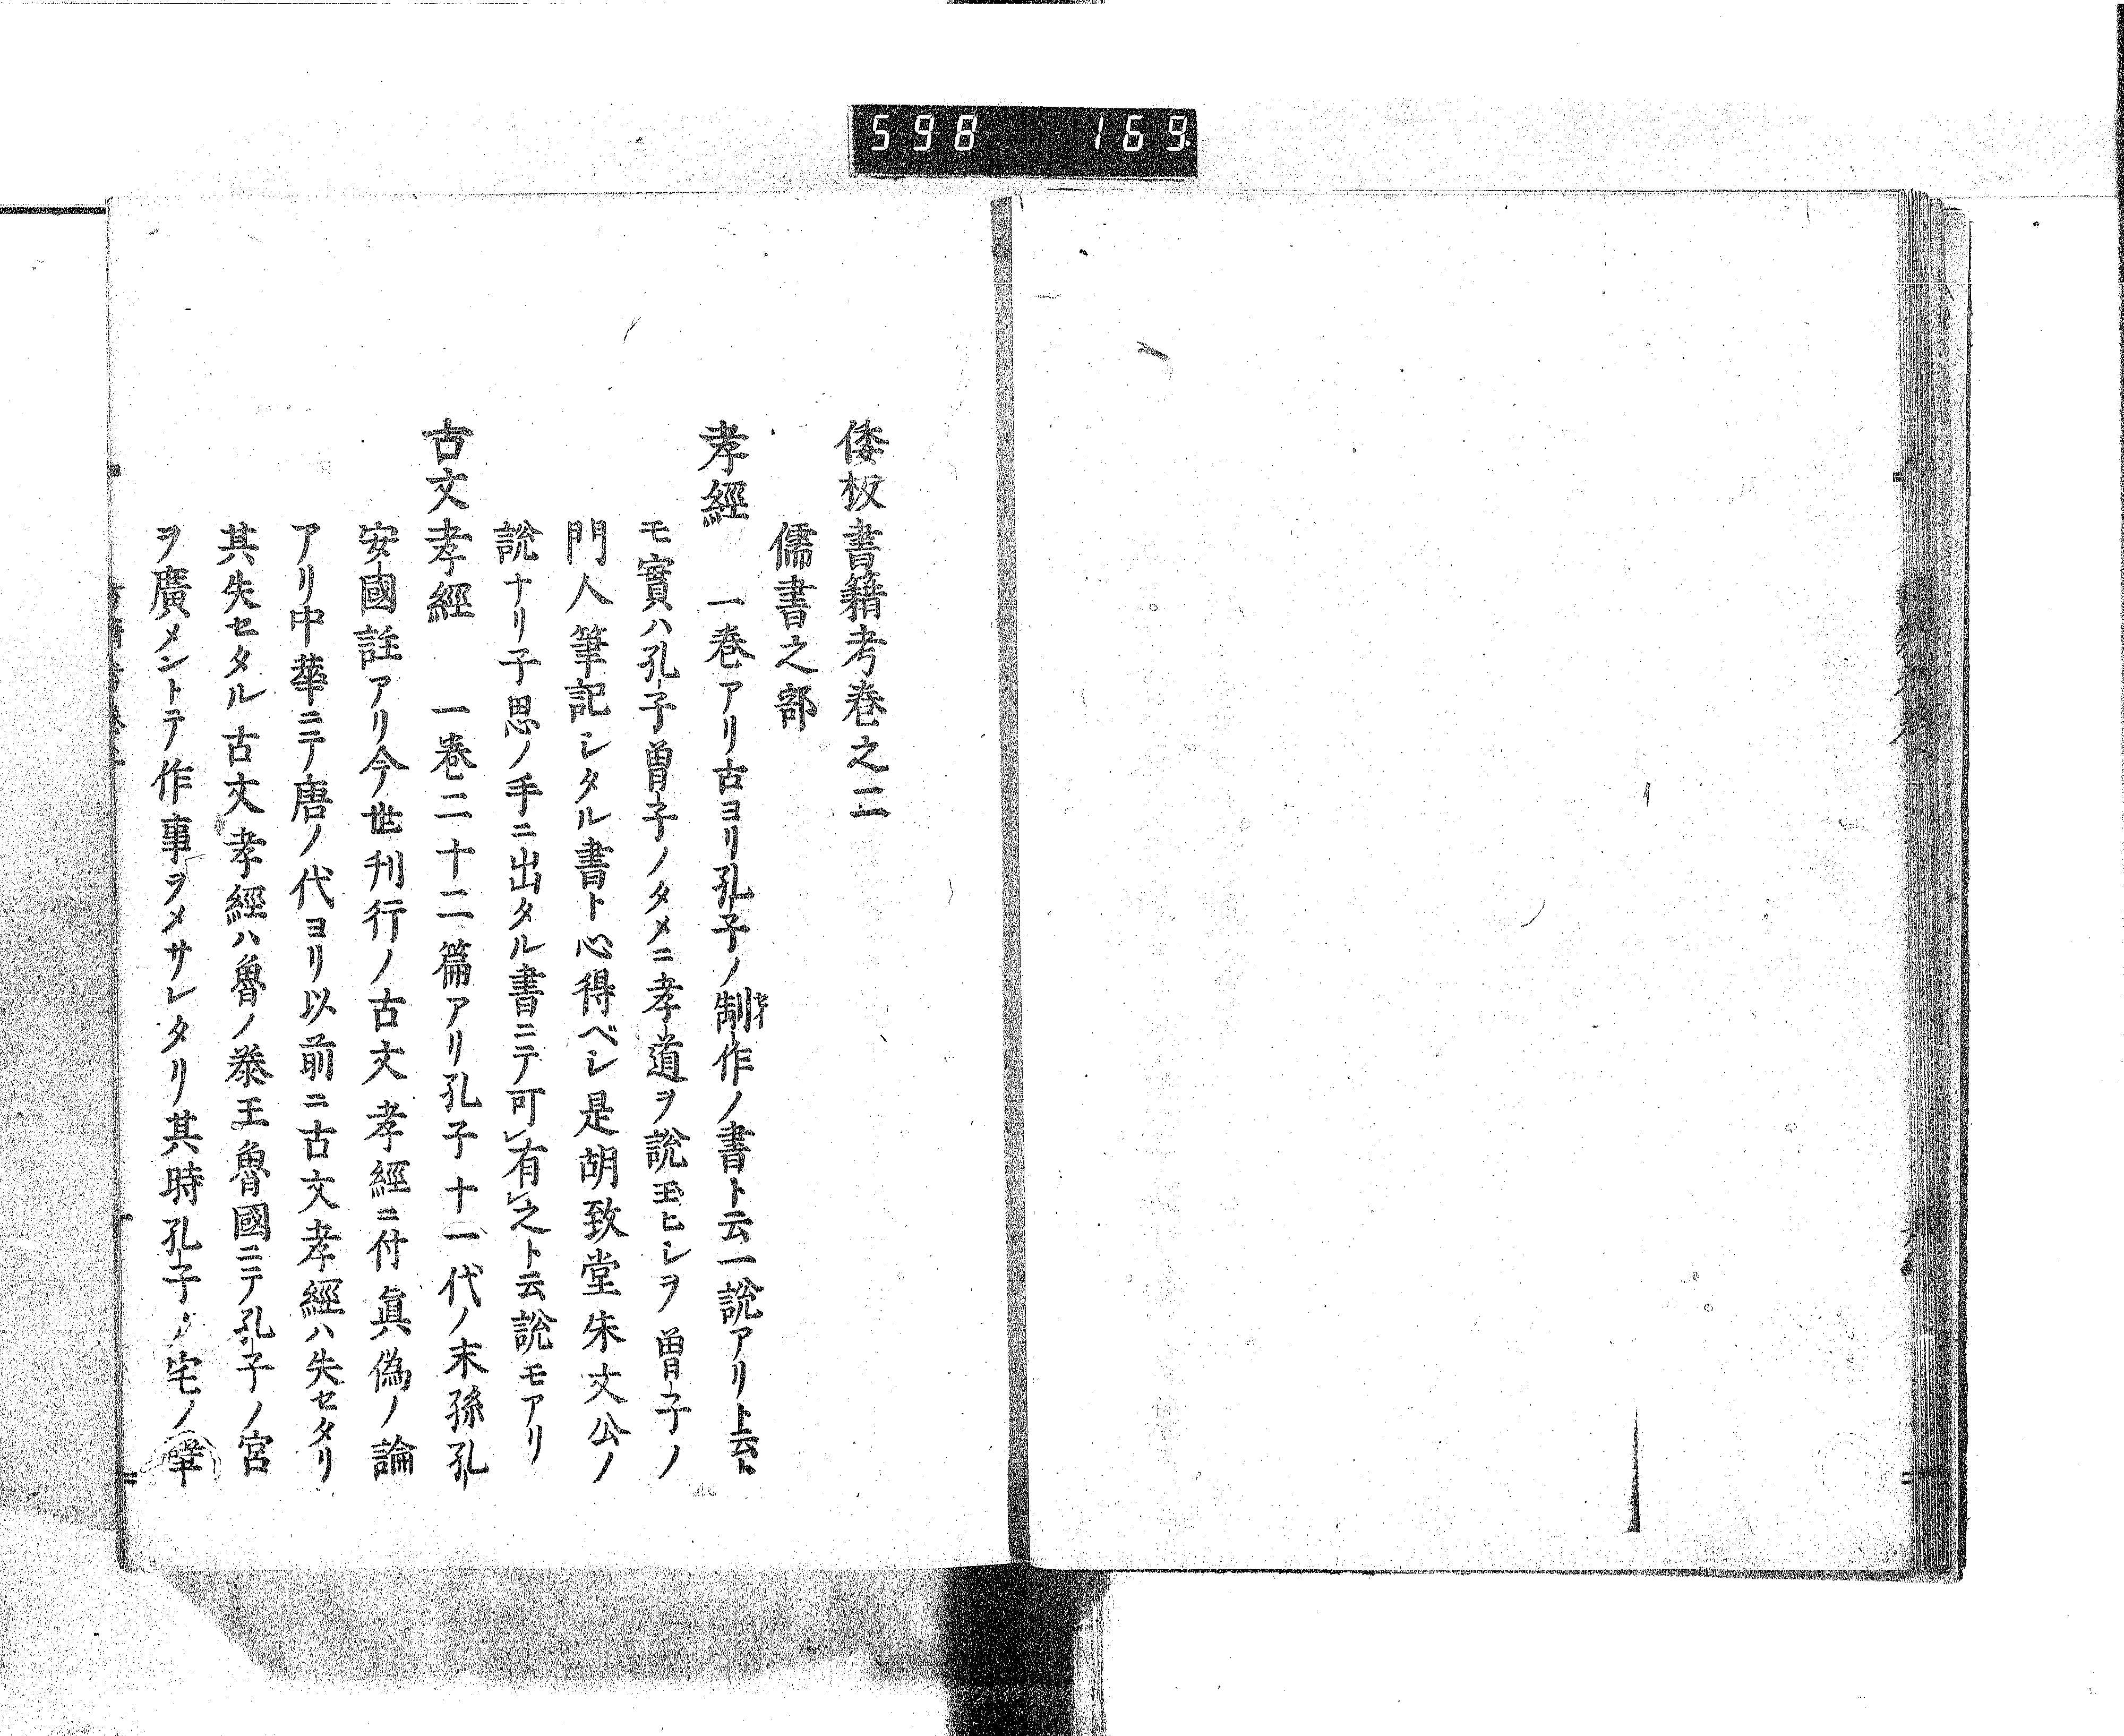 598 169
倭板書籍考卷之二
儒書之部
孝經 一卷アリ古ヨリ孔子ノ制作ノ書ト云一説アリト云ヘト
モ實ハ孔子曾子ノタメニ孝道ヲ説玉ヒシヲ曾子ノ
門人筆記シタル書ト心得ベシ是胡致堂朱文公ノ
説ナリ子思ノ手ニ出タル書ニテ可レ有レ之ト云説モアリ
古文孝經 一卷二十二篇アリ孔子十一代ノ末孫孔
安國註アリ今世刊行ノ古文孝經ニ付眞偽ノ論
アリ中華ニテ唐ノ代ヨリ以前ニ古文孝經ハ失セタリ
其失セタル古文孝經ハ魯ノ恭王魯國ニテ孔子ノ宮
ヲ廣メントテ作事ヲメサレタリ其時孔子ノ宅ノ壁